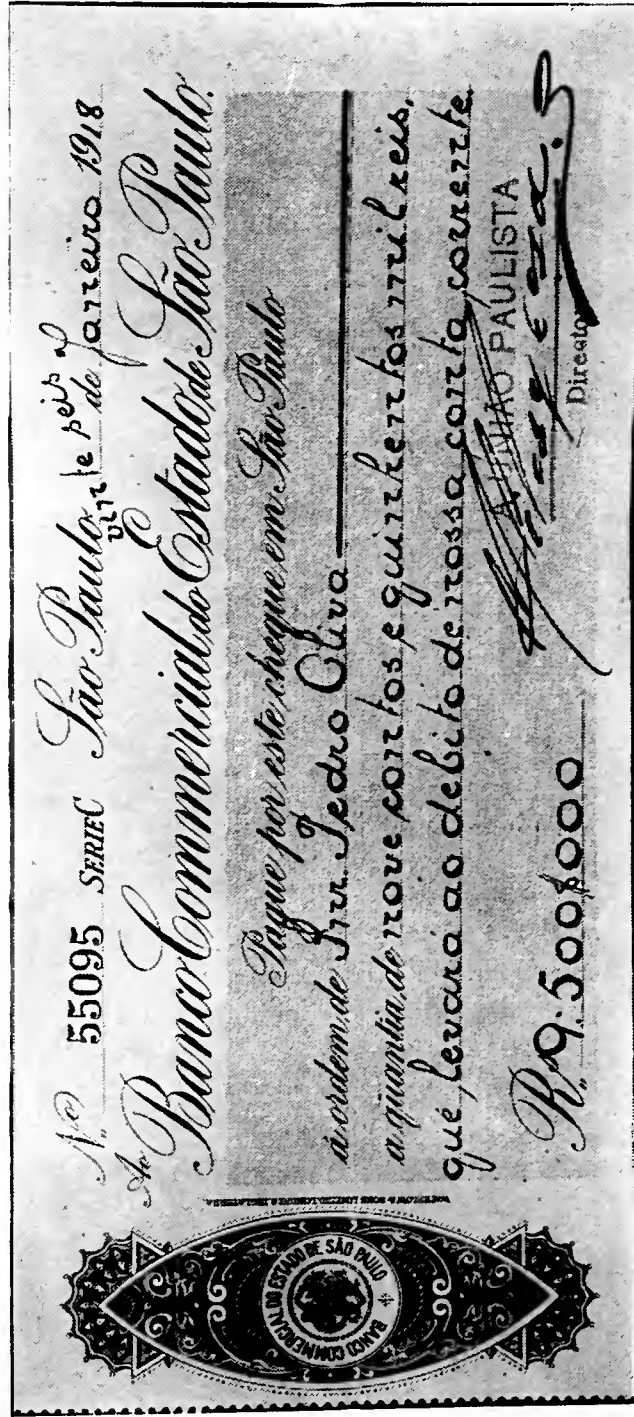 Nº 55095 SERIE C São Paulo, vinte seis de Janeiro 1918
Ao Banco Commercial do Estado de São Paulo.
Pague por este cheque em São Paulo
á ordem de Snr. Pedro Oliva
a quantia de nove contos e quinhentos mil reis,
que levará ao debito de nossa conta corrente
A UNIÃO PAULISTA
Director
Rs 9.500$000
BANCO COMMERCIAL DO ESTADO DE SÃO PAULO
WATERLOW & SONS LIMITED, LONDRES, INGLATERRA